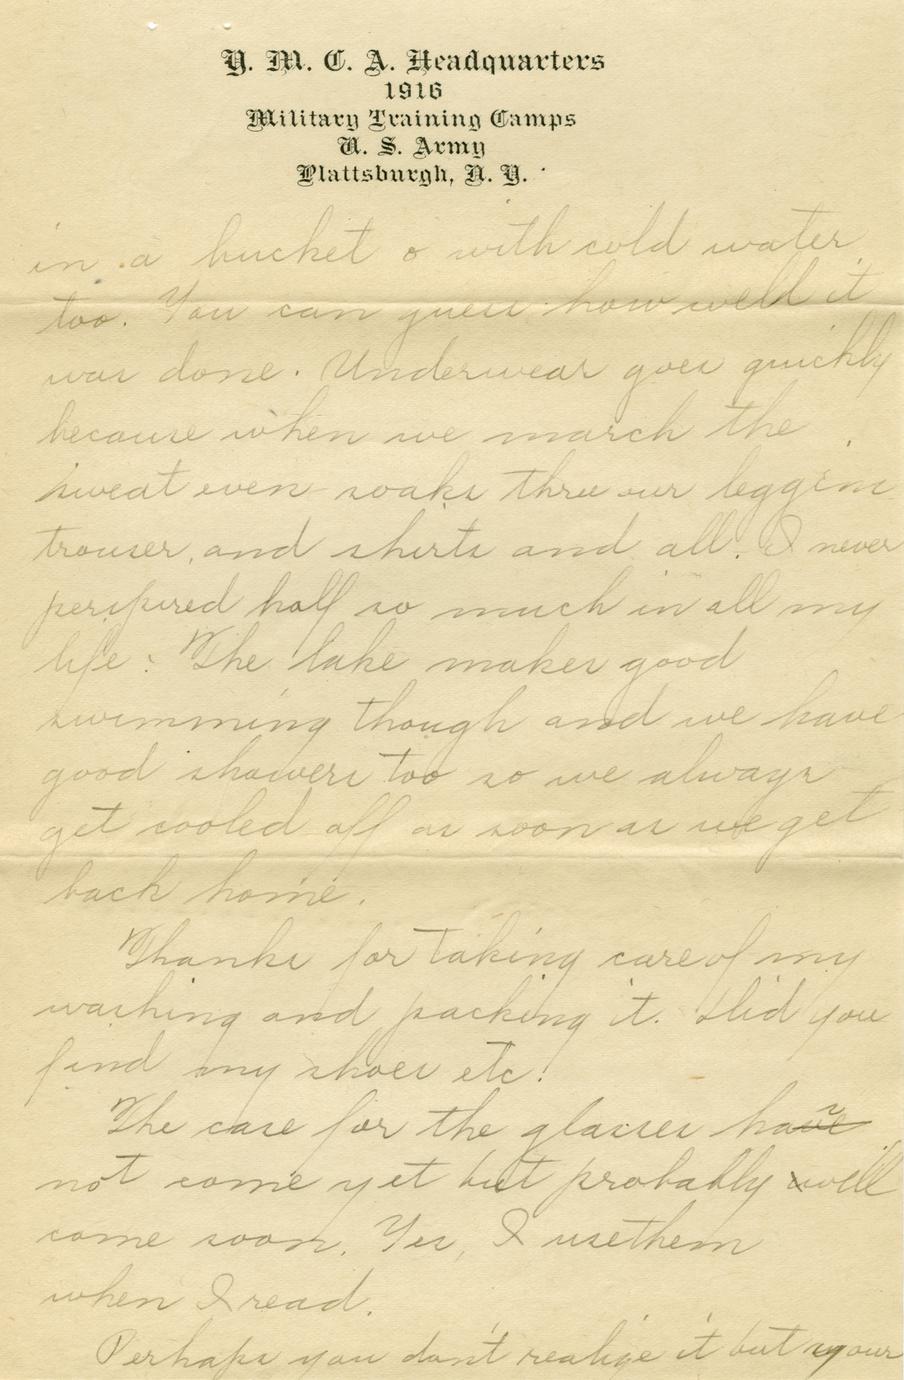 Y. M. C. A. Headquarters
1916
Military Training Camps
U. S. Army
Plattsburgh, N. Y.
in a bucket o with cold water
too. You can guess how well it
was done. Underwear goes quickly
because when we march the
sweat even soaks thru our leggins
trouser, and shirts and all. I never
perspired half so much in all my
life. The lake makes good
swimming though and we have
good showers too so we always
get cooled off as soon as we get
back home.
Thanks for taking care of my
washing and packing it. Did you
find my shoes etc.
The case for the glasses has
not come yet but probably will
come soon. Yes, I use them
when I read.
Perhaps you don't realize it but your